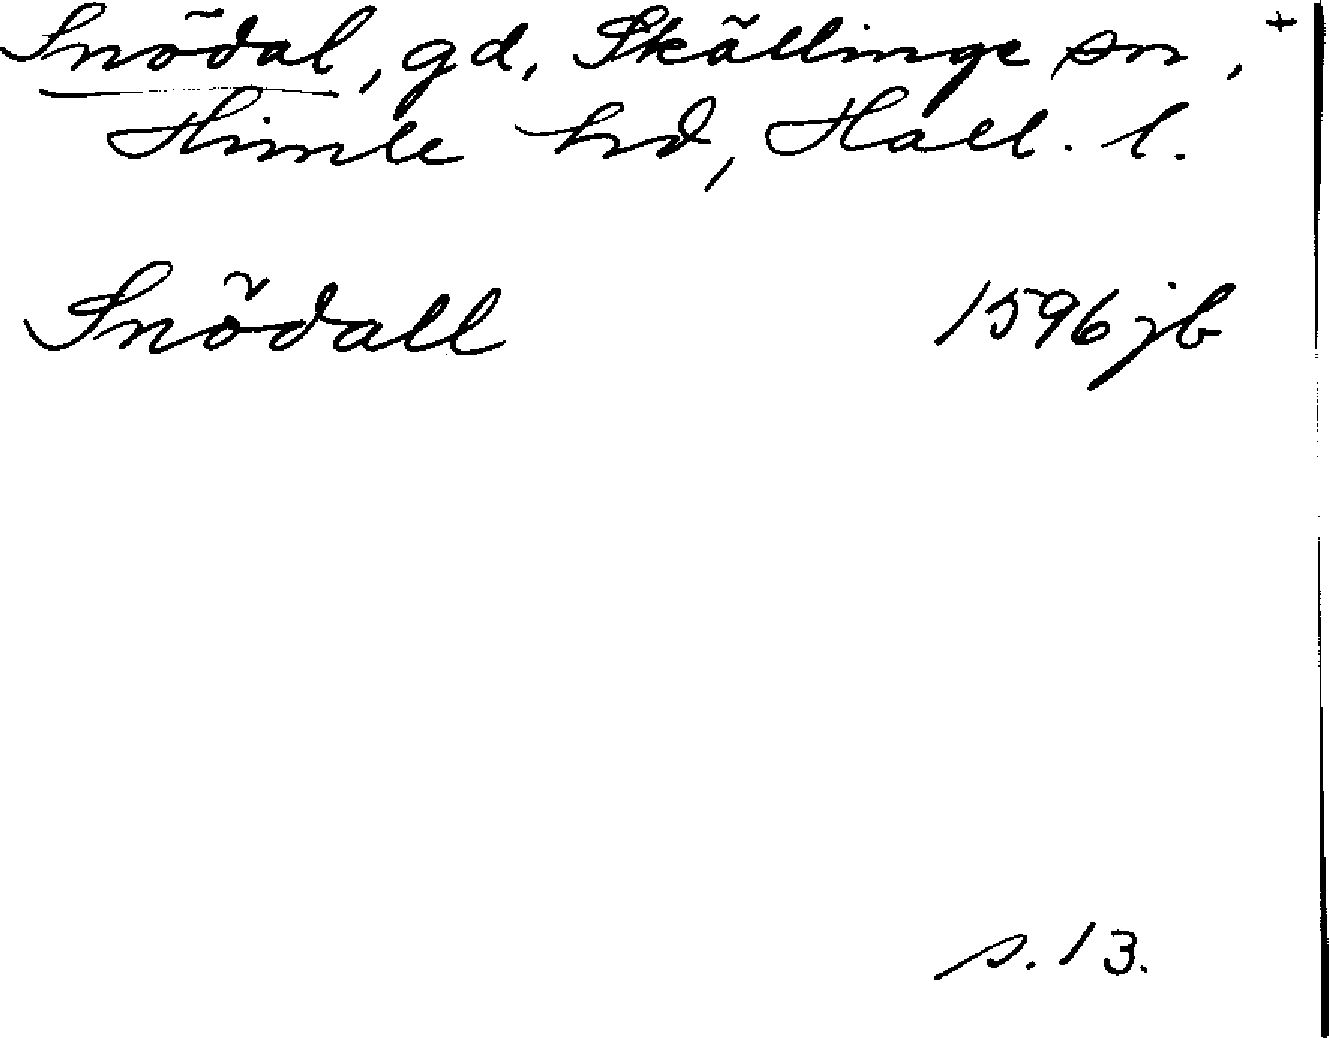 Snödal, gd, Skällinge sn, +
Himle hd, Hall. l.
Snödall 1596 jb
s. 13.